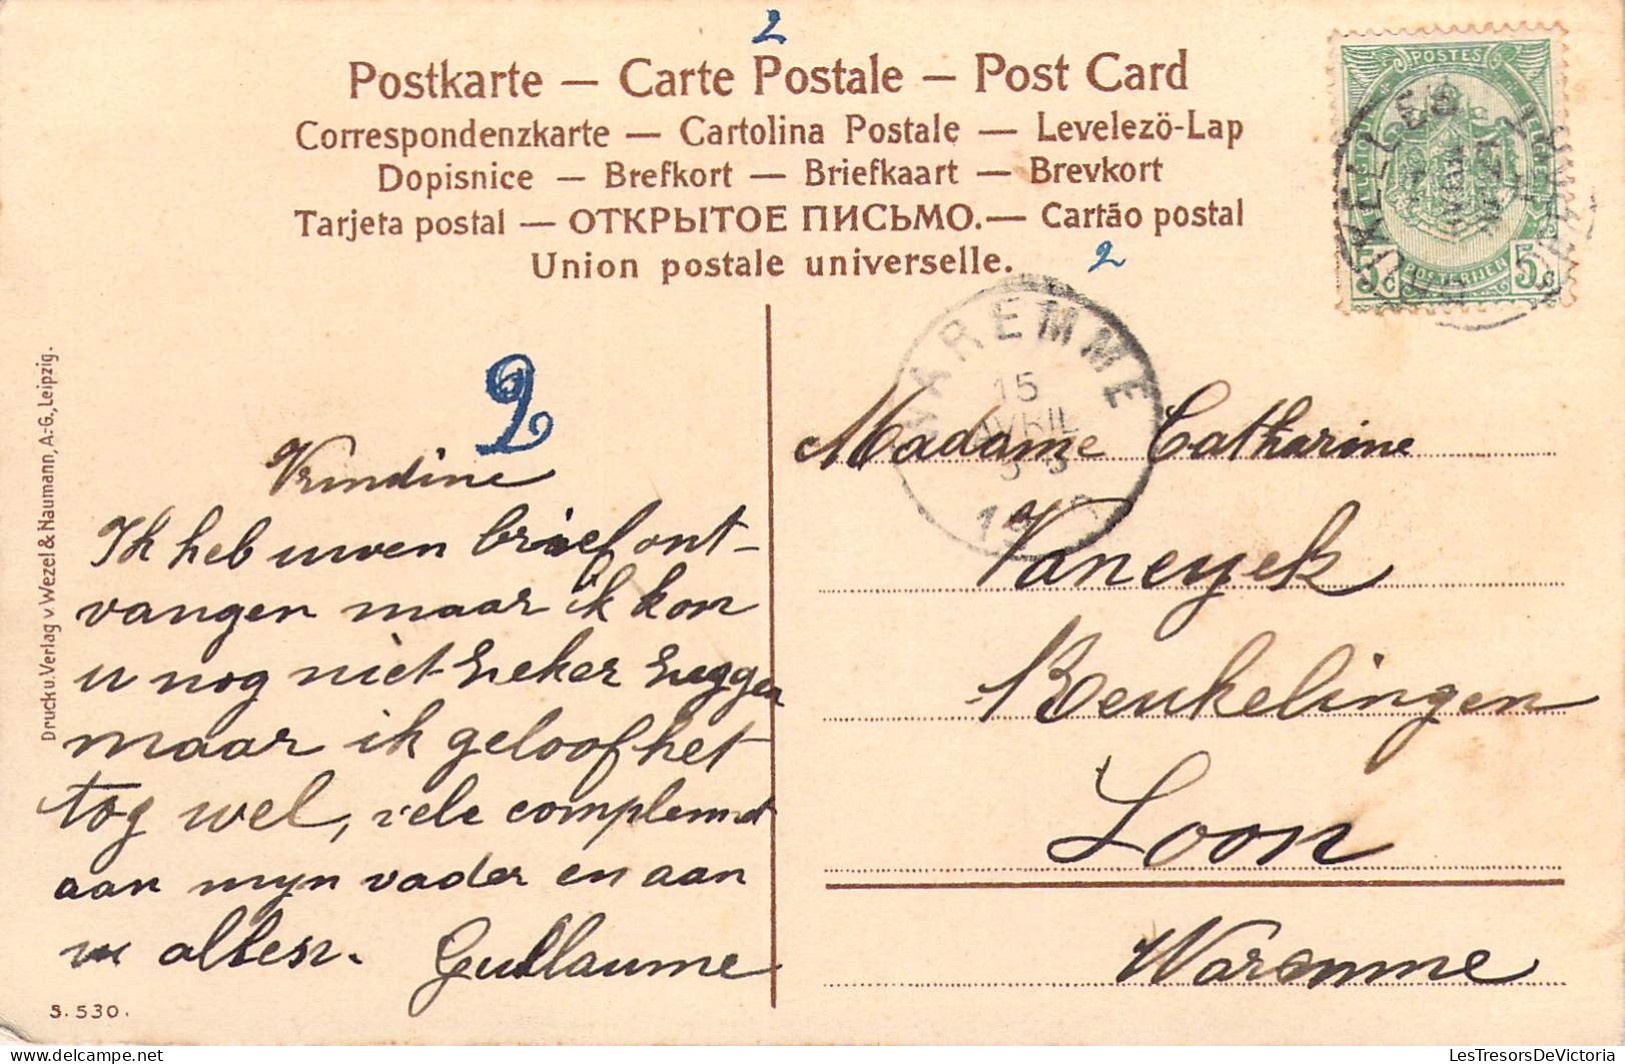 2
Postkarte — Carte Postale — Post Card
Correspondenzkarte — Cartolina Postale — Levelező-Lap
Dopisnice — Brefkort — Briefkaart — Brevkort
Tarjeta postal — ОТКРЫТОЕ ПИСЬМО. — Cartão postal
Union postale universelle. 2
POSTES
5c POSTERIJEN 5c
BRUXELLES
WAREMME
15
AVRIL
19
Druck u. Verlag v. Wezel & Naumann, A.-G., Leipzig.
2
Vrindine
Ik heb uwen brief ont-
vangen maar ik kon
u nog niet zeker zeggen
maar ik geloof het
tog wel, vele complemnt
aan mijn vader en aan
u allen. Guillaume
Madame Catharine
Vaneyck
Beukelingen
Loon
Waremme
S. 530.
LesTresorsDeVictoria